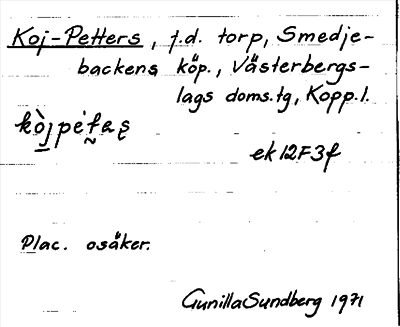 Koj-Petters, f.d. torp, Smedje-
backens köp., Västerbergs-
lags doms.tg, Kopp.l.
ek 12F3f
Plac. osäker.
Gunilla Sundberg 1971